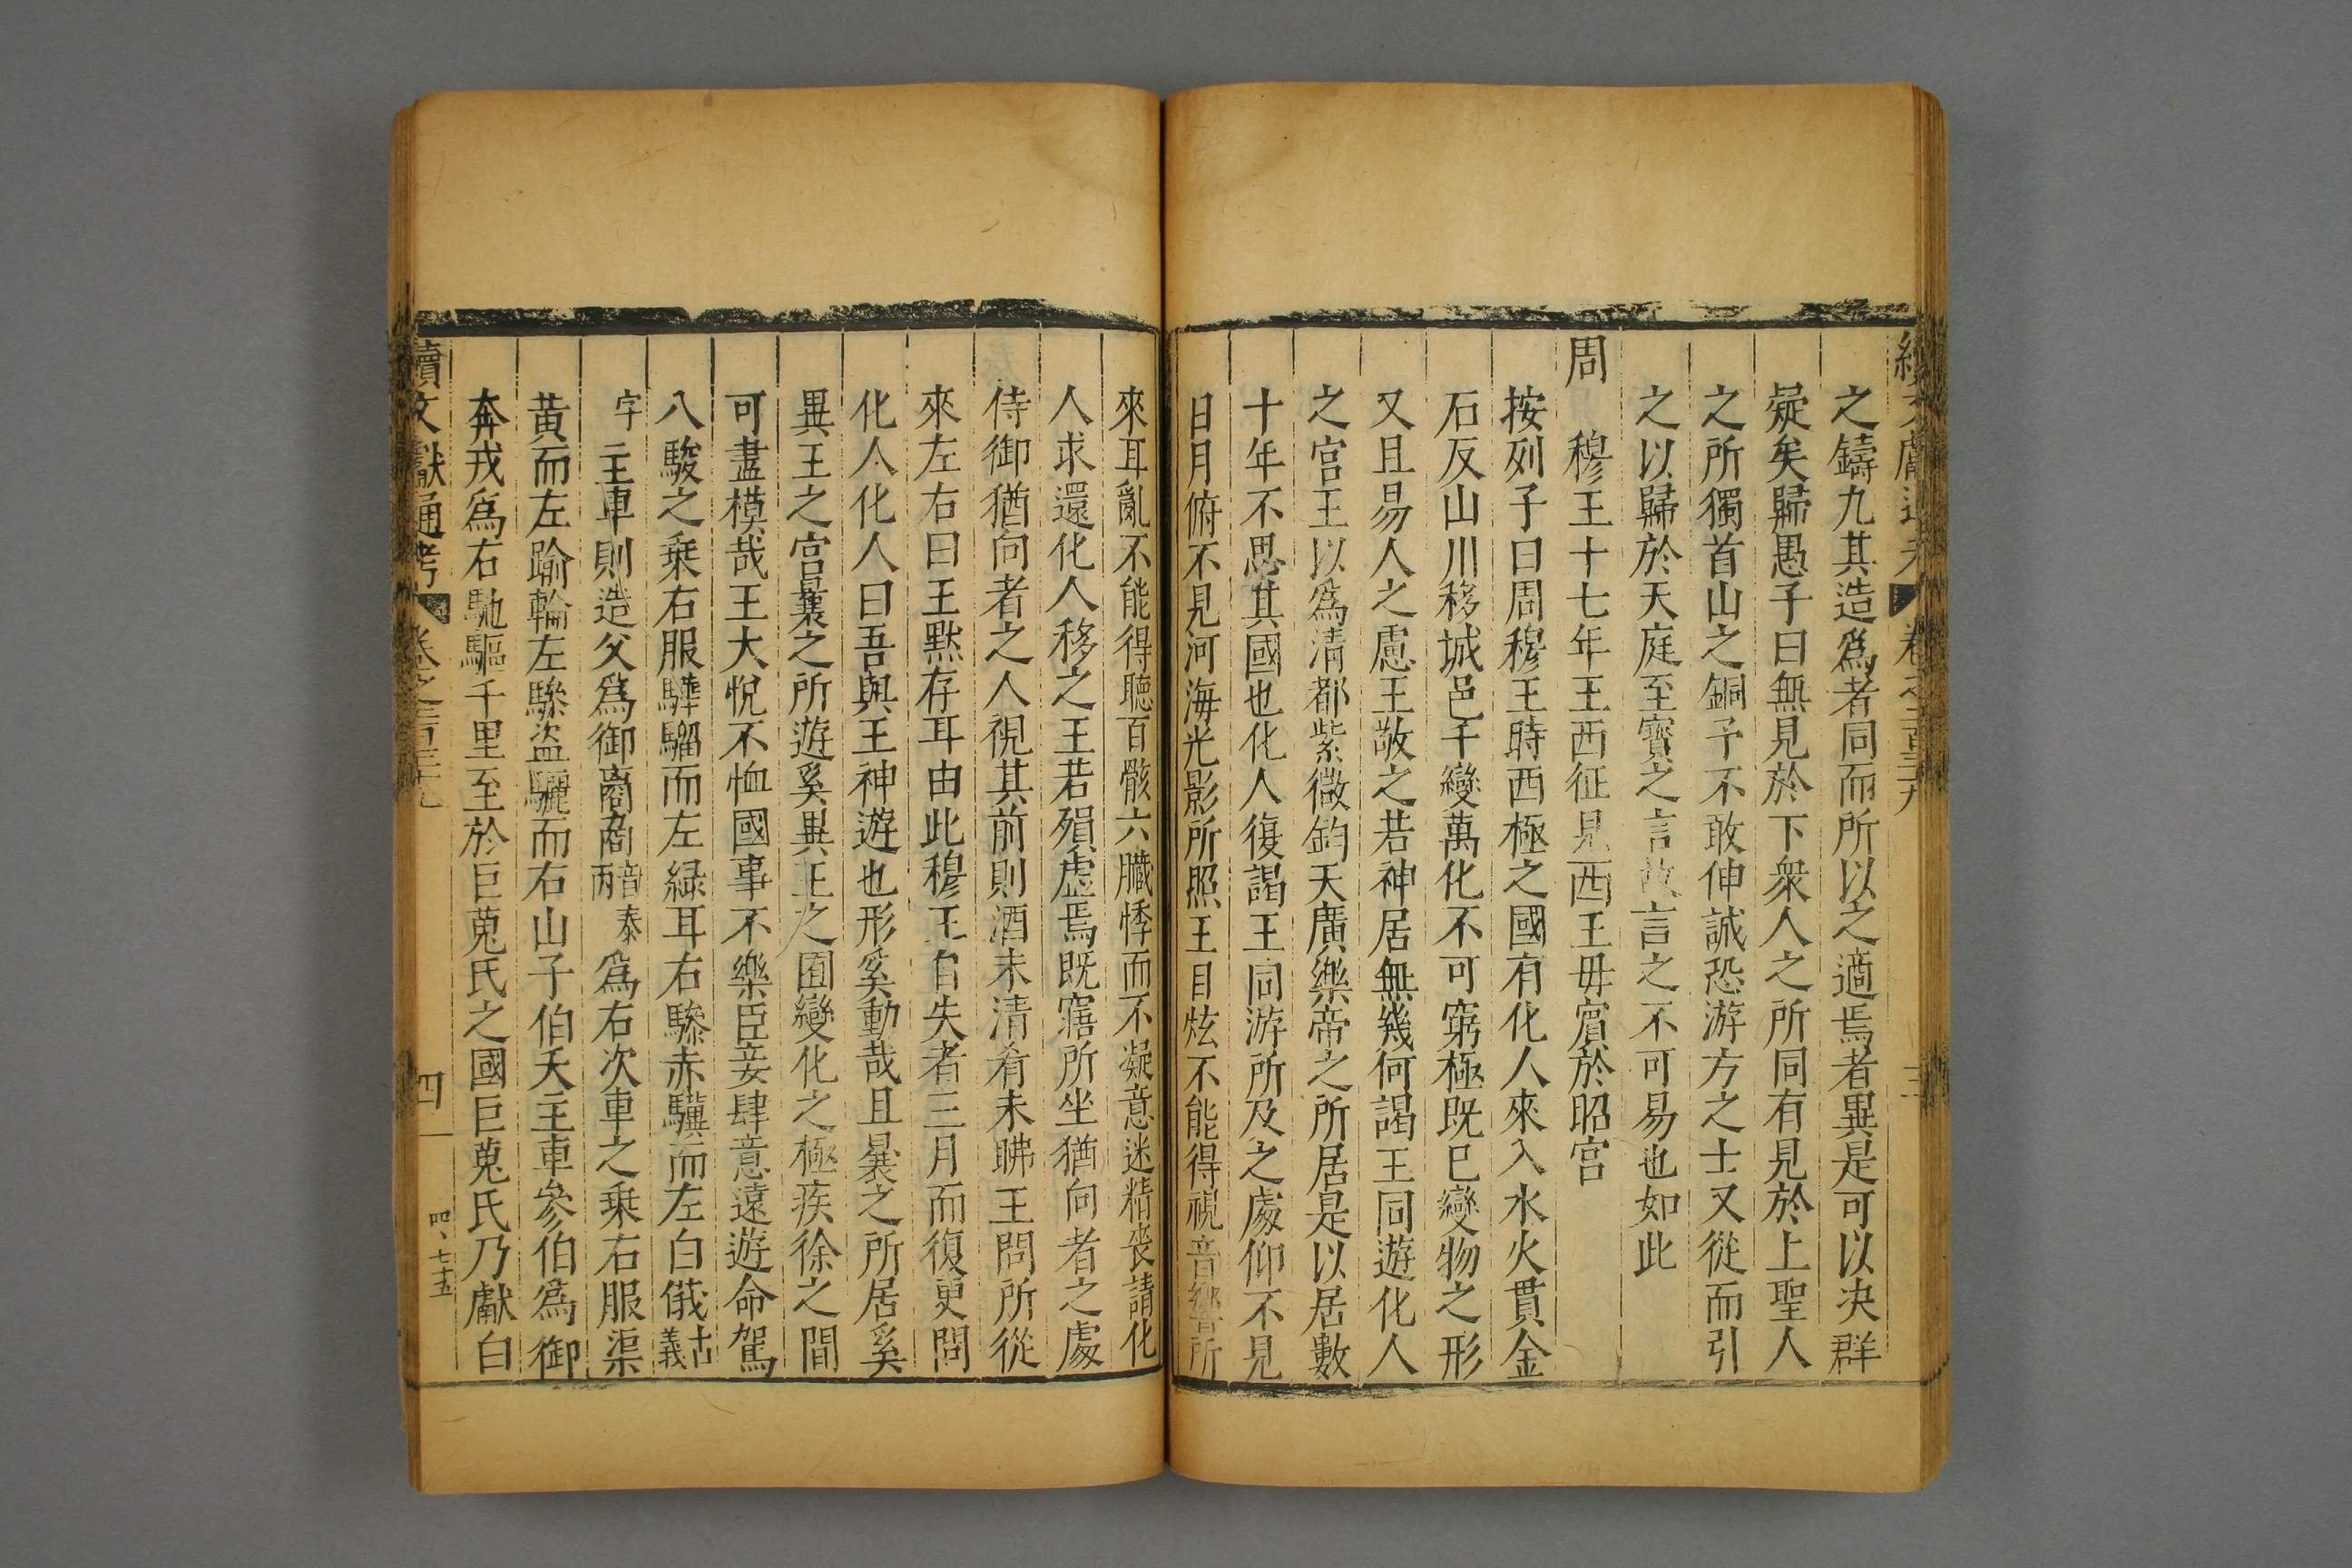 續文獻通考 卷之二百三十九 三
之鑄九其造爲者同而所以之適焉者異是可以决群
疑矣歸愚子曰無見於下衆人之所同有見於上聖人
之所獨首山之銅予不敢伸誠恐游方之士又從而引
之以歸於天庭至寳之言故言之不可易也如此
周 穆王十七年王西征見西王毋賔於昭宮
按列子曰周穆王時西極之國有化人來入水火貫金
石反山川移城邑千變萬化不可窮極既已變物之形
又且易人之慮王敬之若神居無幾何謁王同遊化人
之宮王以爲清都紫微鈞天廣樂帝之所居是以居數
十年不思其國也化人復謁王同游所及之處仰不見
日月俯不見河海光影所照王目炫不能得視音響所
來耳亂不能得聽百骸六臟悸而不凝意迷精喪請化
人求還化人移之王若殞虛焉既寤所坐猶向者之處
侍御猶向者之人視其前則酒未清肴未昲王問所從
來左右曰王默存耳由此穆王自失者三月而復更問
化人化人曰吾與王神遊也形奚動哉且曩之所居奚
異王之宮曩之所遊奚異王之囿變化之極疾徐之間
可盡模哉王大悅不恤國事不樂臣妾肆意遠遊命駕
八駿之乗右服驊騮而左緑耳右驂赤驥而左白俄古義
字主車則造父爲御𦺗𠸶音泰丙爲右次車之乗右服渠
黄而左踰輪左驂盜驪而右山子伯夭主車參伯爲御
奔戎爲右馳驅千里至於巨蒐氏之國巨蒐氏乃獻白
續文獻通考 卷之二百三十九 四 四、七十五